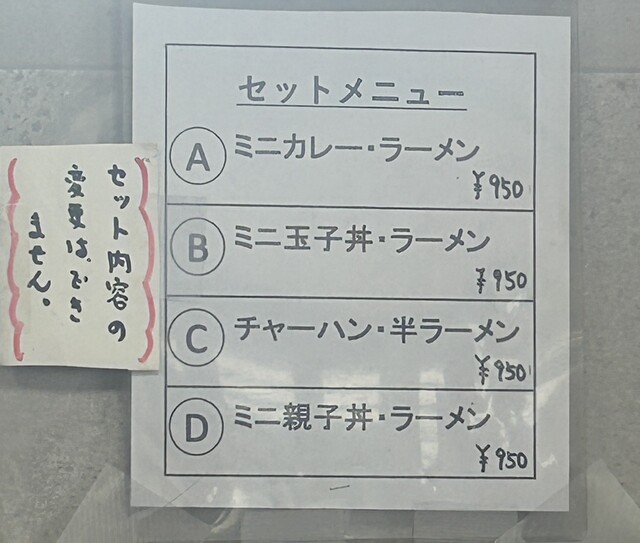 セットメニュー
A ミニカレー・ラーメン
¥950
B ミニ玉子丼・ラーメン
¥950
C チャーハン・半ラーメン
¥950
D ミニ親子丼・ラーメン
¥950
セット内容の
変更は、でき
ません。